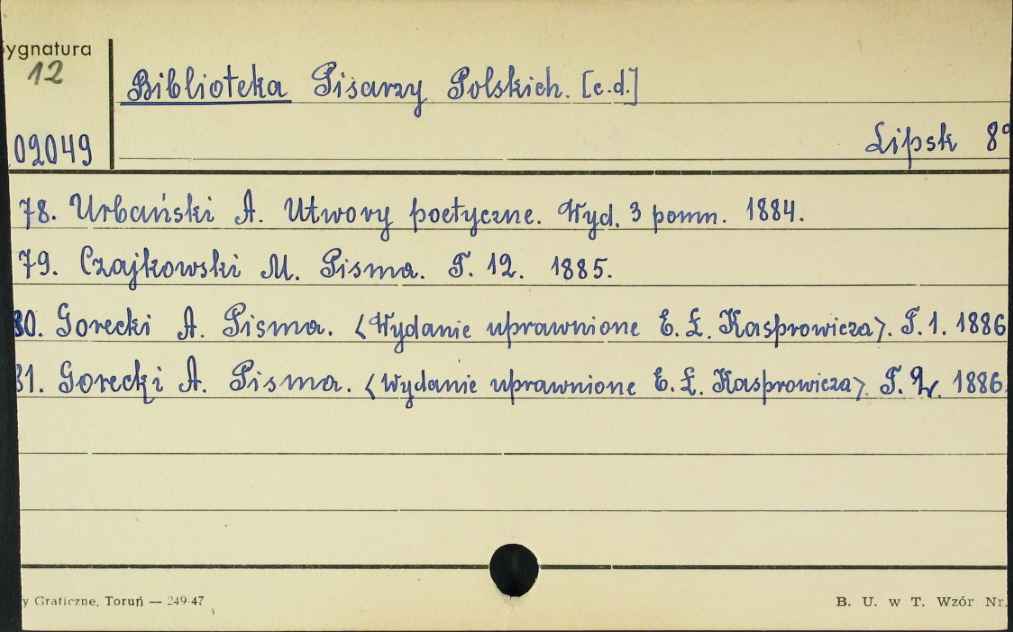 ygnatura
12
Biblioteka Pisarzy Polskich. [c.d.]
02049
Lipsk 8°
78. Urbański A. Utwory poetyczne. Wyd. 3 pomn. 1884.
79. Czajkowski M. Pisma. T. 12. 1885.
80. Gorecki A. Pisma. <Wydanie uprawnione E. Ł. Kasprowicza>. T. 1. 1886
81. Gorecki A. Pisma. <Wydanie uprawnione E. Ł. Kasprowicza>. T. 2. 1886.
y Graficzne, Toruń — 249/47
B. U. w T. Wzór Nr.